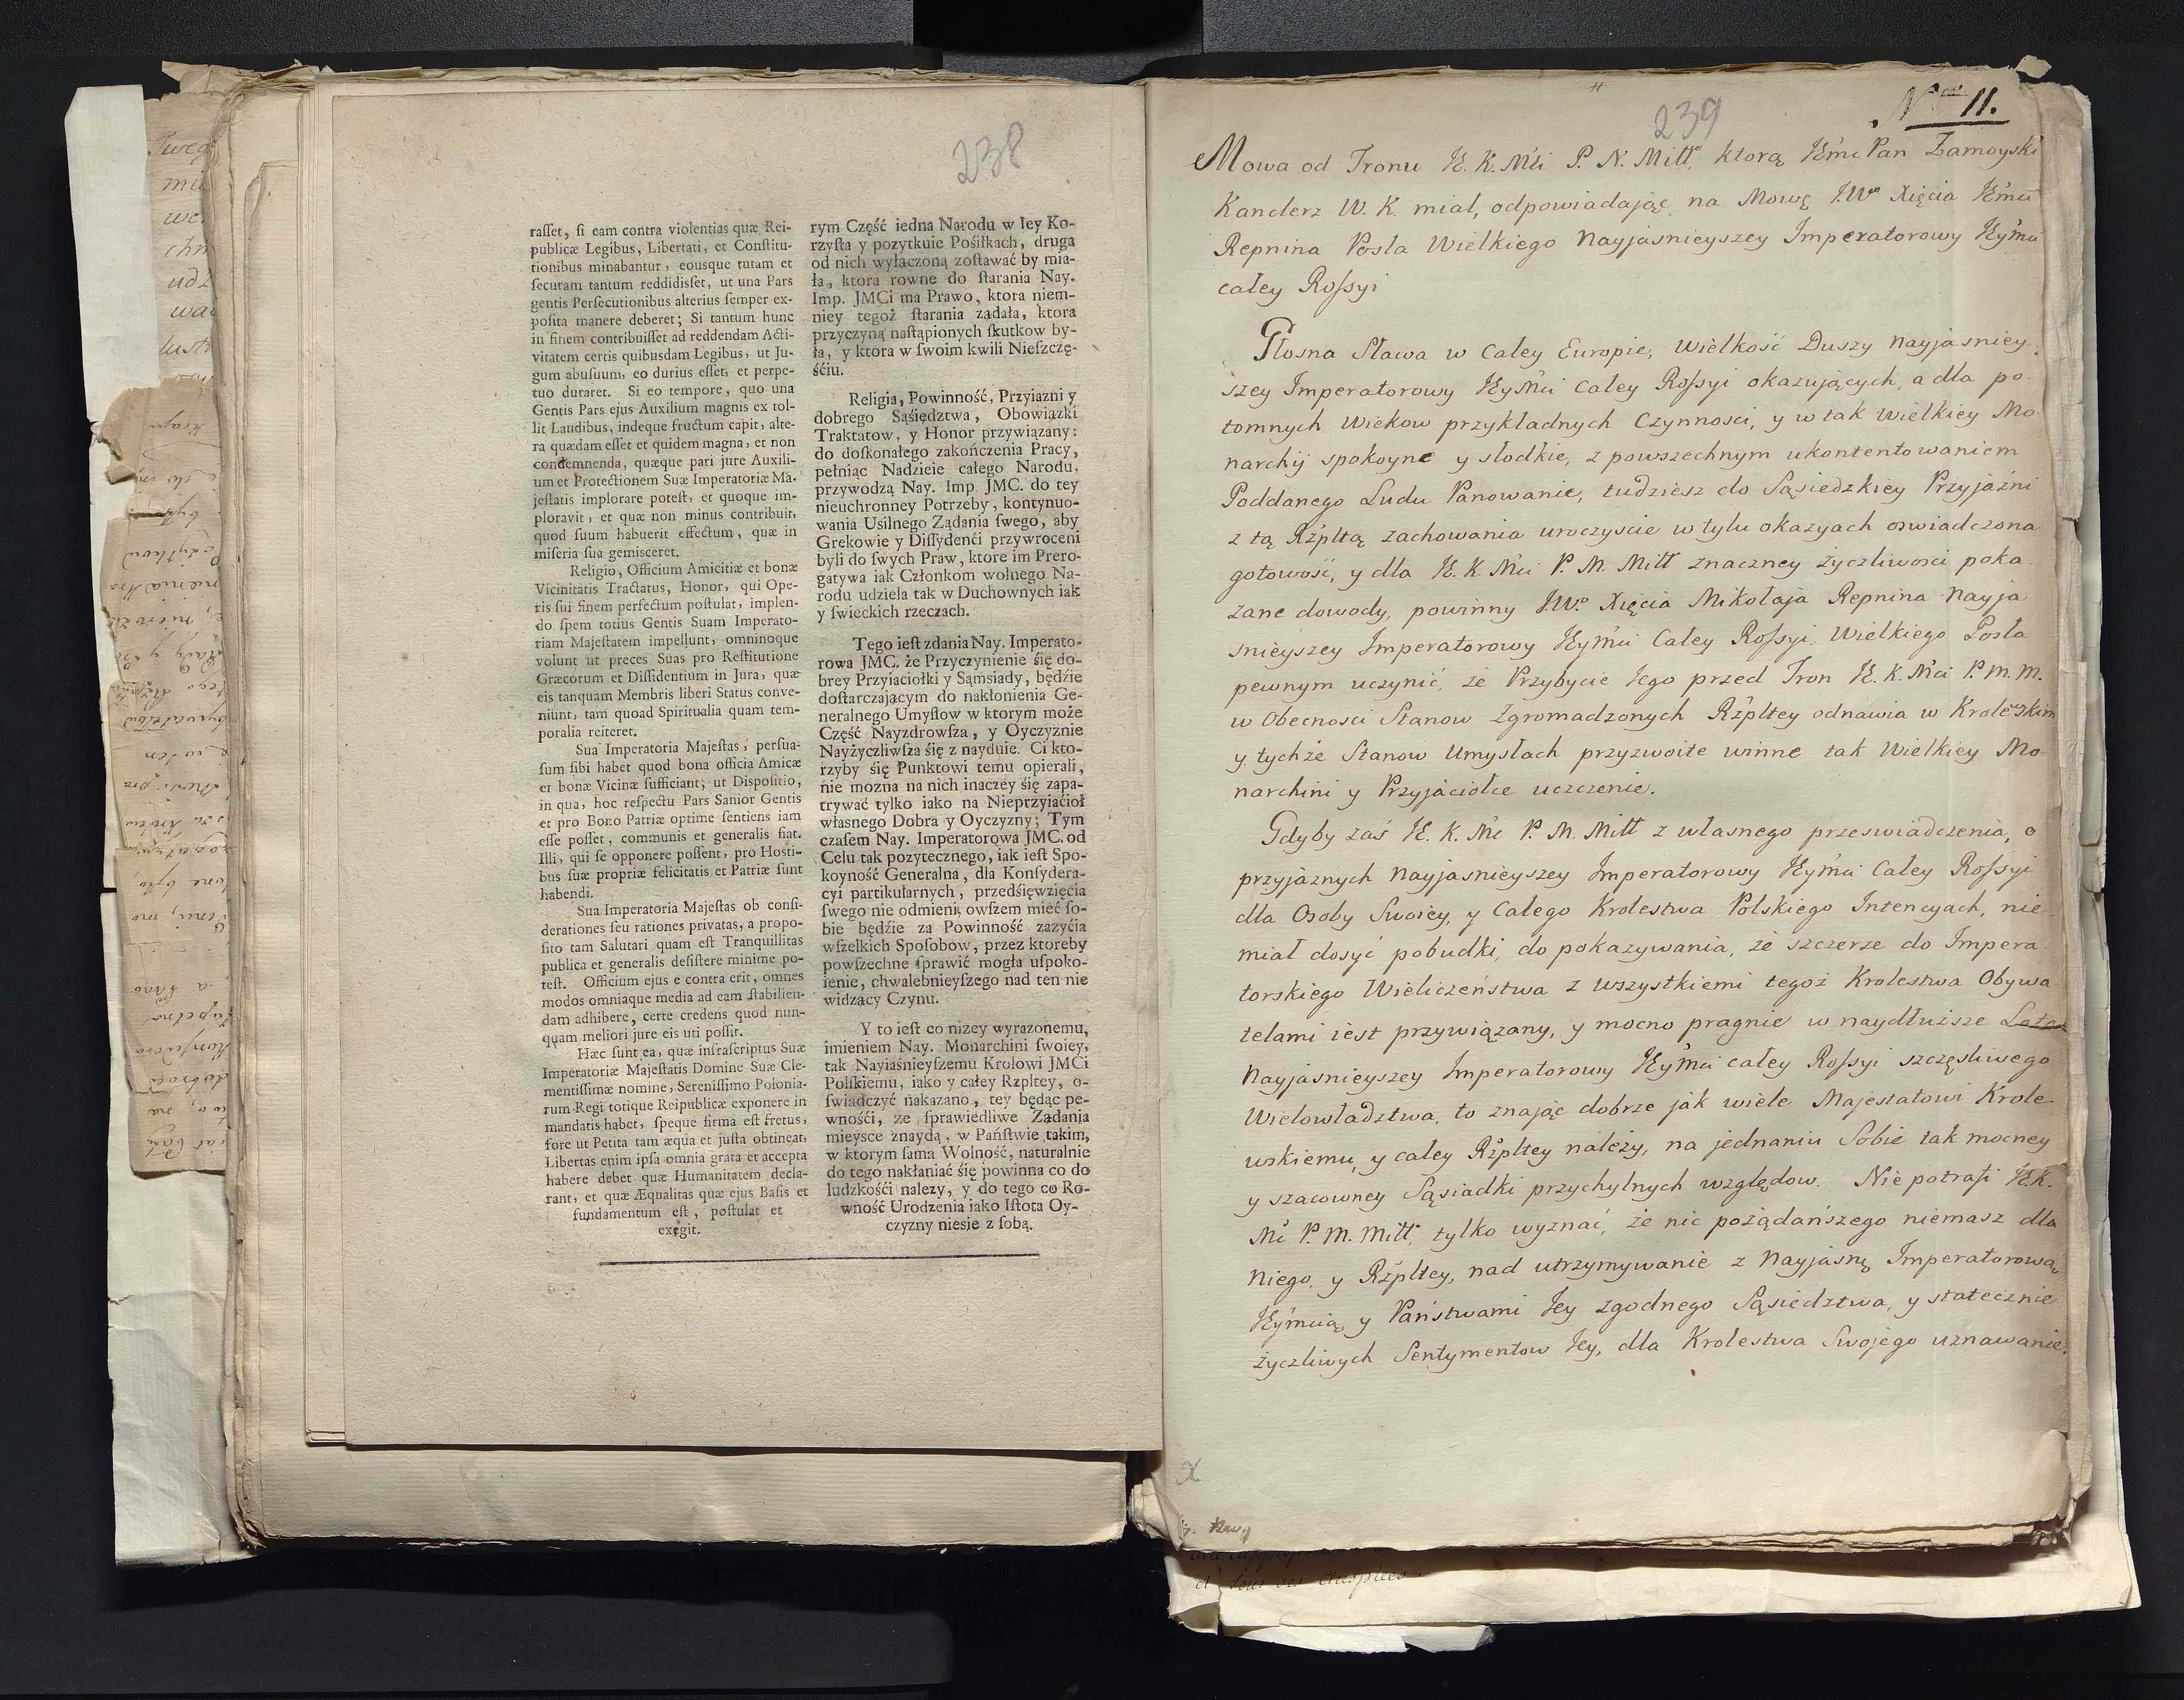 238
rasſet, ſi eam contra violentias quæ Rei-
publicæ Legibus, Libertati, et Conſtitu-
tionibus minabantur, eousque tutam et
ſecuram tantum reddidisſet, ut una Pars
gentis Perſecutionibus alterius ſemper ex-
poſita manere deberet; Si tantum hunc
in finem contribuiſſet ad reddendam Acti-
vitatem certis quibusdam Legibus, ut Ju-
gum abuſuum, eo durius eſſet, et perpe-
tuo duraret. Si eo tempore, quo una
Gentis Pars ejus Auxilium magnis ex tol-
lit Laudibus, indeque fructum capit, alte-
ra quædam eſſet et quidem magna, et non
condemnenda, quæque pari jure Auxili-
um et Protectionem Suæ Imperatoriæ Ma-
jeſtatis implorare poteſt, et quoque im-
ploravit, et quæ non minus contribuit,
quod ſuum habuerit effectum, quæ in
miſeria ſua gemisceret.
Religio, Officium Amicitiæ et bonæ
Vicinitatis Tractatus, Honor, qui Ope-
ris ſui finem perfectum poſtulat, implen-
do ſpem totius Gentis Suam Imperato-
riam Majeſtatem impellunt, omninoque
volunt ut preces Suas pro Reſtitutione
Græcorum et Diſſidentium in Jura, quæ
eis tanquam Membris liberi Status conve-
niunt, tam quoad Spiritualia quam tem-
poralia reiteret.
Sua Imperatoria Majeſtas, perſua-
ſum ſibi habet quod bona officia Amicæ
et bonæ Vicinæ ſufficiant, ut Dispoſitio,
in qua, hoc reſpectu Pars Sanior Gentis
et pro Bono Patriæ optime ſentiens iam
eſſe poſſet, communis et generalis fiat.
Illi, qui ſe opponere poſſent, pro Hosti-
bus ſuæ propriæ felicitatis et Patriæ ſunt
habendi.
Sua Imperatoria Majeſtas ob conſi-
derationes ſeu rationes privatas, a propo-
ſito tam Salutari quam eſt Tranquillitas
publica et generalis deſiſtere minime po-
teſt. Officium ejus e contra erit, omnes
modos omniaque media ad eam ſtabilien-
dam adhibere, certe credens quod nun-
quam meliori jure eis uti poſſit.
Hæc ſunt ea, quæ infraſcriptus Suæ
Imperatoriæ Majeſtatis Domine Suæ Cle-
mentiſſimæ nomine, Sereniſſimo Polonia-
rum Regi totique Reipublicæ exponere in
mandatis habet, ſpeque firma eſt fretus,
fore ut Petita tam æqua et juſta obtineat,
Libertas enim ipſa omnia grata et accepta
habere debet quæ Humanitatem decla-
rant, et quæ Æqualitas quæ ejus Baſis et
fundamentum eſt, poſtulat et
exigit.
rym Część iedna Narodu w Iey Ko-
rzyſta y pozytkuie Pośiłkach, druga
od nich wyłaczoną zoſtawać by mia-
ła, ktora rowne do ſtarania Nay.
Imp. JMCi ma Prawo, ktora niem-
niey tegoż ſtarania zadała, ktora
przyczyną naſtąpionych ſkutkow by-
ła, y ktora w ſwoim kwili Nieſzczę-
śćiu.
Religia, Powinność, Przyiazni y
dobrego Sąśiędztwa, Obowiązki
Traktatow, y Honor przywiązany:
do doſkonałego zakończenia Pracy,
pełniąc Nadzieie całego Narodu,
przywodzą Nay. Imp. JMC. do tey
nieuchronney Potrzeby, kontynuo-
wania Usilnego Ządania ſwego, aby
Grekowie y Diſſydenći przywroceni
byli do ſwych Praw, ktore im Prero-
gatywa iak Członkom wolnego Na-
rodu udziela tak w Duchownych iak
y ſwieckich rzeczach.
Tego ieſt zdania Nay. Imperato-
rowa JMC. że Przyczynienie śię do-
brey Przyiaciołki y Sąmsiady, będzie
doſtarczaiącym do nakłonienia Ge-
neralnego Umyſłow w ktorym może
Część Nayzdrowſza, y Oyczyznie
Nayżyczliwſza śię z nayduie. Ci kto-
rzyby śię Punktowi temu opierali,
nie mozna na nich inaczey śię zapa-
trywać tylko iako na Nieprzyiaćioł
własnego Dobra y Oyczyzny; Tym
czaſem Nay. Imperatorowa JMC. od
Celu tak pozytecznego, iak ieſt Spo-
koyność Generalna, dla Konſydera-
cyi partikularnych, przedśięwzięcia
ſwego nie odmieni, owſzem mieć ſo-
bie będźie za Powinność zazyćia
wſzelkich Spoſobow, przez ktoreby
powſzechne ſprawić mogła uſpoko-
ienie, chwalebnieyſzego nad ten nie
widzący Czynu.
Y to ieſt co nizey wyrazonemu,
imieniem Nay. Monarchini ſwoiey,
tak Nayiaśnieyſzemu Krolowi JMCi
Polſkiemu, iako y całey Rzpltey, o-
ſwiadczyć nakazano, tey będąc pe-
wnośći, że ſprawiedliwe Ządania
mieysce znaydą, w Pańſtwie takim,
w ktorym ſama Wolność, naturalnie
do tego nakłaniać śię powinna co do
ludzkośći nalezy, y do tego co Ro-
wność Urodzenia iako Iſtota Oy-
czyzny niesie z ſobą.
239
11.
Mowa od Tronu JE. K. Mći P. N. Miłł. ktorą JEmć Pan Zamoyski
Kanclerz W. K. miał, odpowiadając na Mowę JWo Xięcia JEmći
Repnina Posła Wielkiego Nayjasnieyszey Imperatorowy JEymći
całey Roſsyi
Głosna Sława w całey Europie, Wielkość Duszy Nayjasniey-
szey Imperatorowy JEyMći całey Roſsyi okazujących, a dla po-
tomnych Wiekow przykładnych Czynnosci, y w tak wielkiey Mo-
narchij spokoyne y słodkie, z powszechnym ukontentowaniem
Poddanego Ludu Panowanie, tudziesz do Sąsiedzkiey Przyjaźni
z tą Rzpltą zachowania uroczyscie w tylu okazyach oswiadczona
gotowość, y dla JE. K. Mći P. M. Miłł znaczney życzliwosci poka-
zane dowody, powinny JWo Xięcia Mikołaja Repnina Nayja-
snieyszey Imperatorowy JEymći Całey Roſsyi Wielkiego Posła
pewnym uczynić, że Przybycie Jego przed Tron JE. K. Mći P. M. M.
w Obecnosci Stanow Zgromadzonych Rzpltey odnawia w Krolewskim
y tychże Stanow Umysłach przyzwoite winne tak Wielkiey Mo-
narchini y Przyjaciołce uczczenie.
Gdyby zaś JE. K. Mć P. M. Miłł z własnego przeswiadczenia, o
przyjaznych Nayjasnieyszey Imperatorowy JEymći Całey Roſsyi
dla Osoby Swoiey, y Całego Krolestwa Polskiego Intencyach, nie
miał dosyć pobudki, do pokazywania, że szczerze do Impera-
torskiego Wieliczeństwa z wszystkiemi tegoż Krolestwa Obywa-
telami iest przywiązany, y mocno pragnie w naydłuższe Lata
Nayjasnieyszey Imperatorowy JEymći całey Roſsyi szczęsliwego
Wielowładztwa, to znając dobrze jak wiele Majestatowi Krole-
wskiemu, y całey Rzpltey należy, na jednaniu Sobie tak mocney
y szacowney Sąsiadki przychylnych względow. Nie potrafi JE. K.
Mć P. M. Miłł, tylko wyznać, że nic pożądańszego niemasz dla
Niego, y Rzpltey, nad utrzymywanie z Nayjasną Imperatorową
JEymcią y Państwami Jey zgodnego Sąsiedztwa, y statecznie
życzliwych Sentymentow Jey, dla Krolestwa Swojego uznawanie.